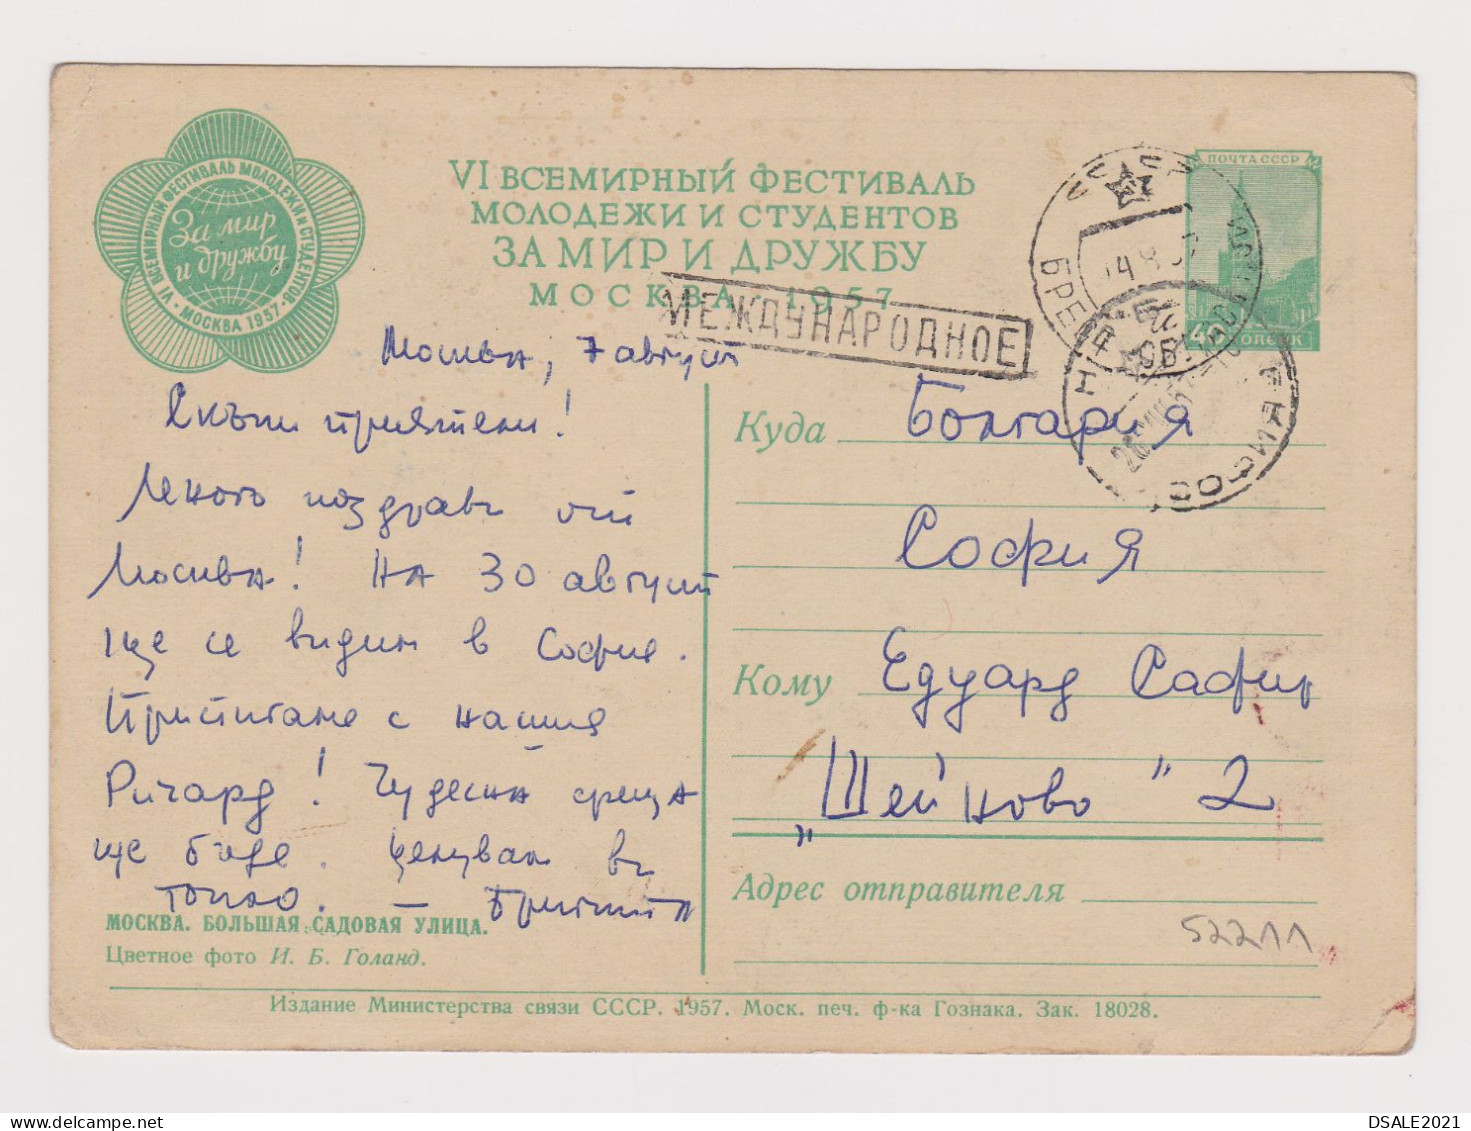 VI ВСЕМИРНЫЙ ФЕСТИВАЛЬ МОЛОДЕЖИ И СТУДЕНТОВ
За мир
и дружбу
• МОСКВА 1957 •
VI ВСЕМИРНЫЙ ФЕСТИВАЛЬ
МОЛОДЕЖИ И СТУДЕНТОВ
ЗА МИР И ДРУЖБУ
МОСКВА 1957
ПОЧТА СССР
МЕЖДУНАРОДНОЕ
Москва, 7 август
Скъпи приятели!
Много поздрави от
Москва! На 30 август
ще се видим в София.
Пристигаме с нашия
Ричард! Чудесна среща
ще бъде. Целувам ви
топло. —
Куда Болгария
София
Кому Едуард Сафир
„Шейново" 2
Адрес отправителя
52211
МОСКВА. БОЛЬШАЯ САДОВАЯ УЛИЦА.
Цветное фото И. Б. Голанд.
Издание Министерства связи СССР. 1957. Моск. печ. ф-ка Гознака. Зак. 18028.
DSALE2021